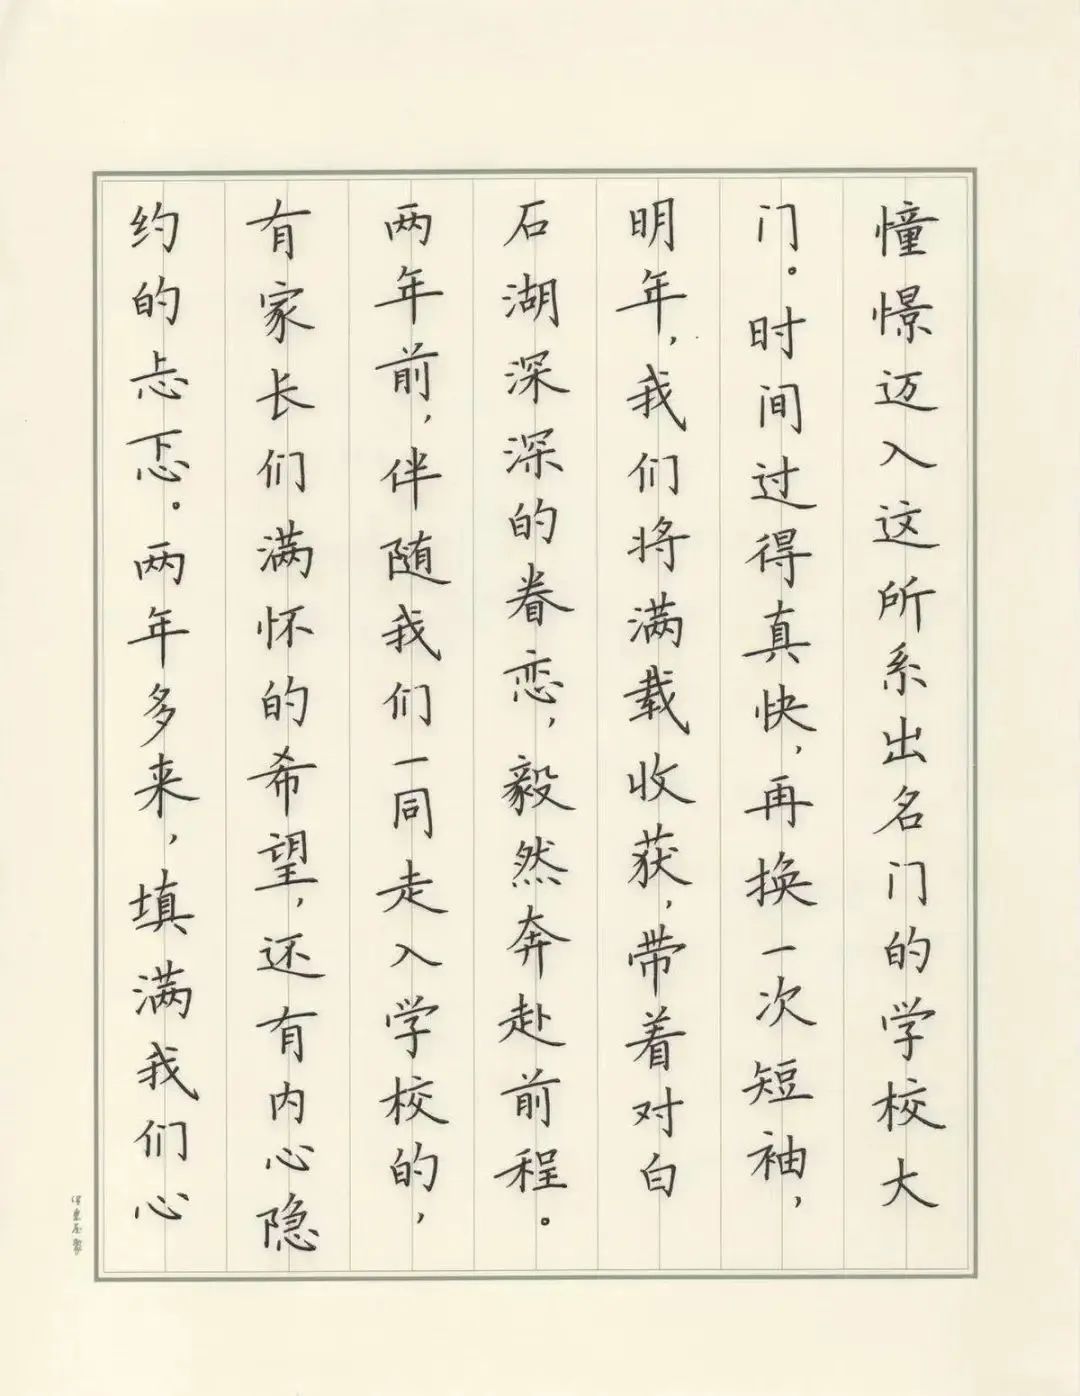 憧憬迈入这所系出名门的学校大
门。时间过得真快,再换一次短袖,
明年,我们将满载收获,带着对白
石湖深深的眷恋,毅然奔赴前程。
两年前,伴随我们一同走入学校的,
有家长们满怀的希望,还有内心隐
约的忐忑。两年多来,填满我们心